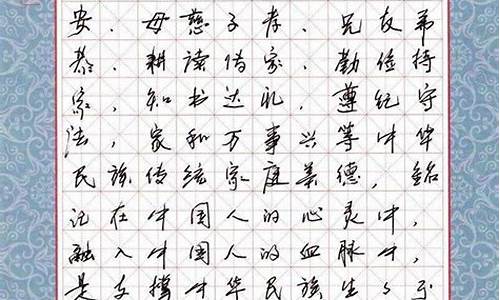 安、母慈子孝、兄友弟
恭，耕读传家、勤俭持
家，知书达礼，遵纪守
法，家和万事兴等中华
民族传统家庭美德，铭
记在中国人的心灵中，
融入中国人的血脉中，
是支撑中华民族生生不